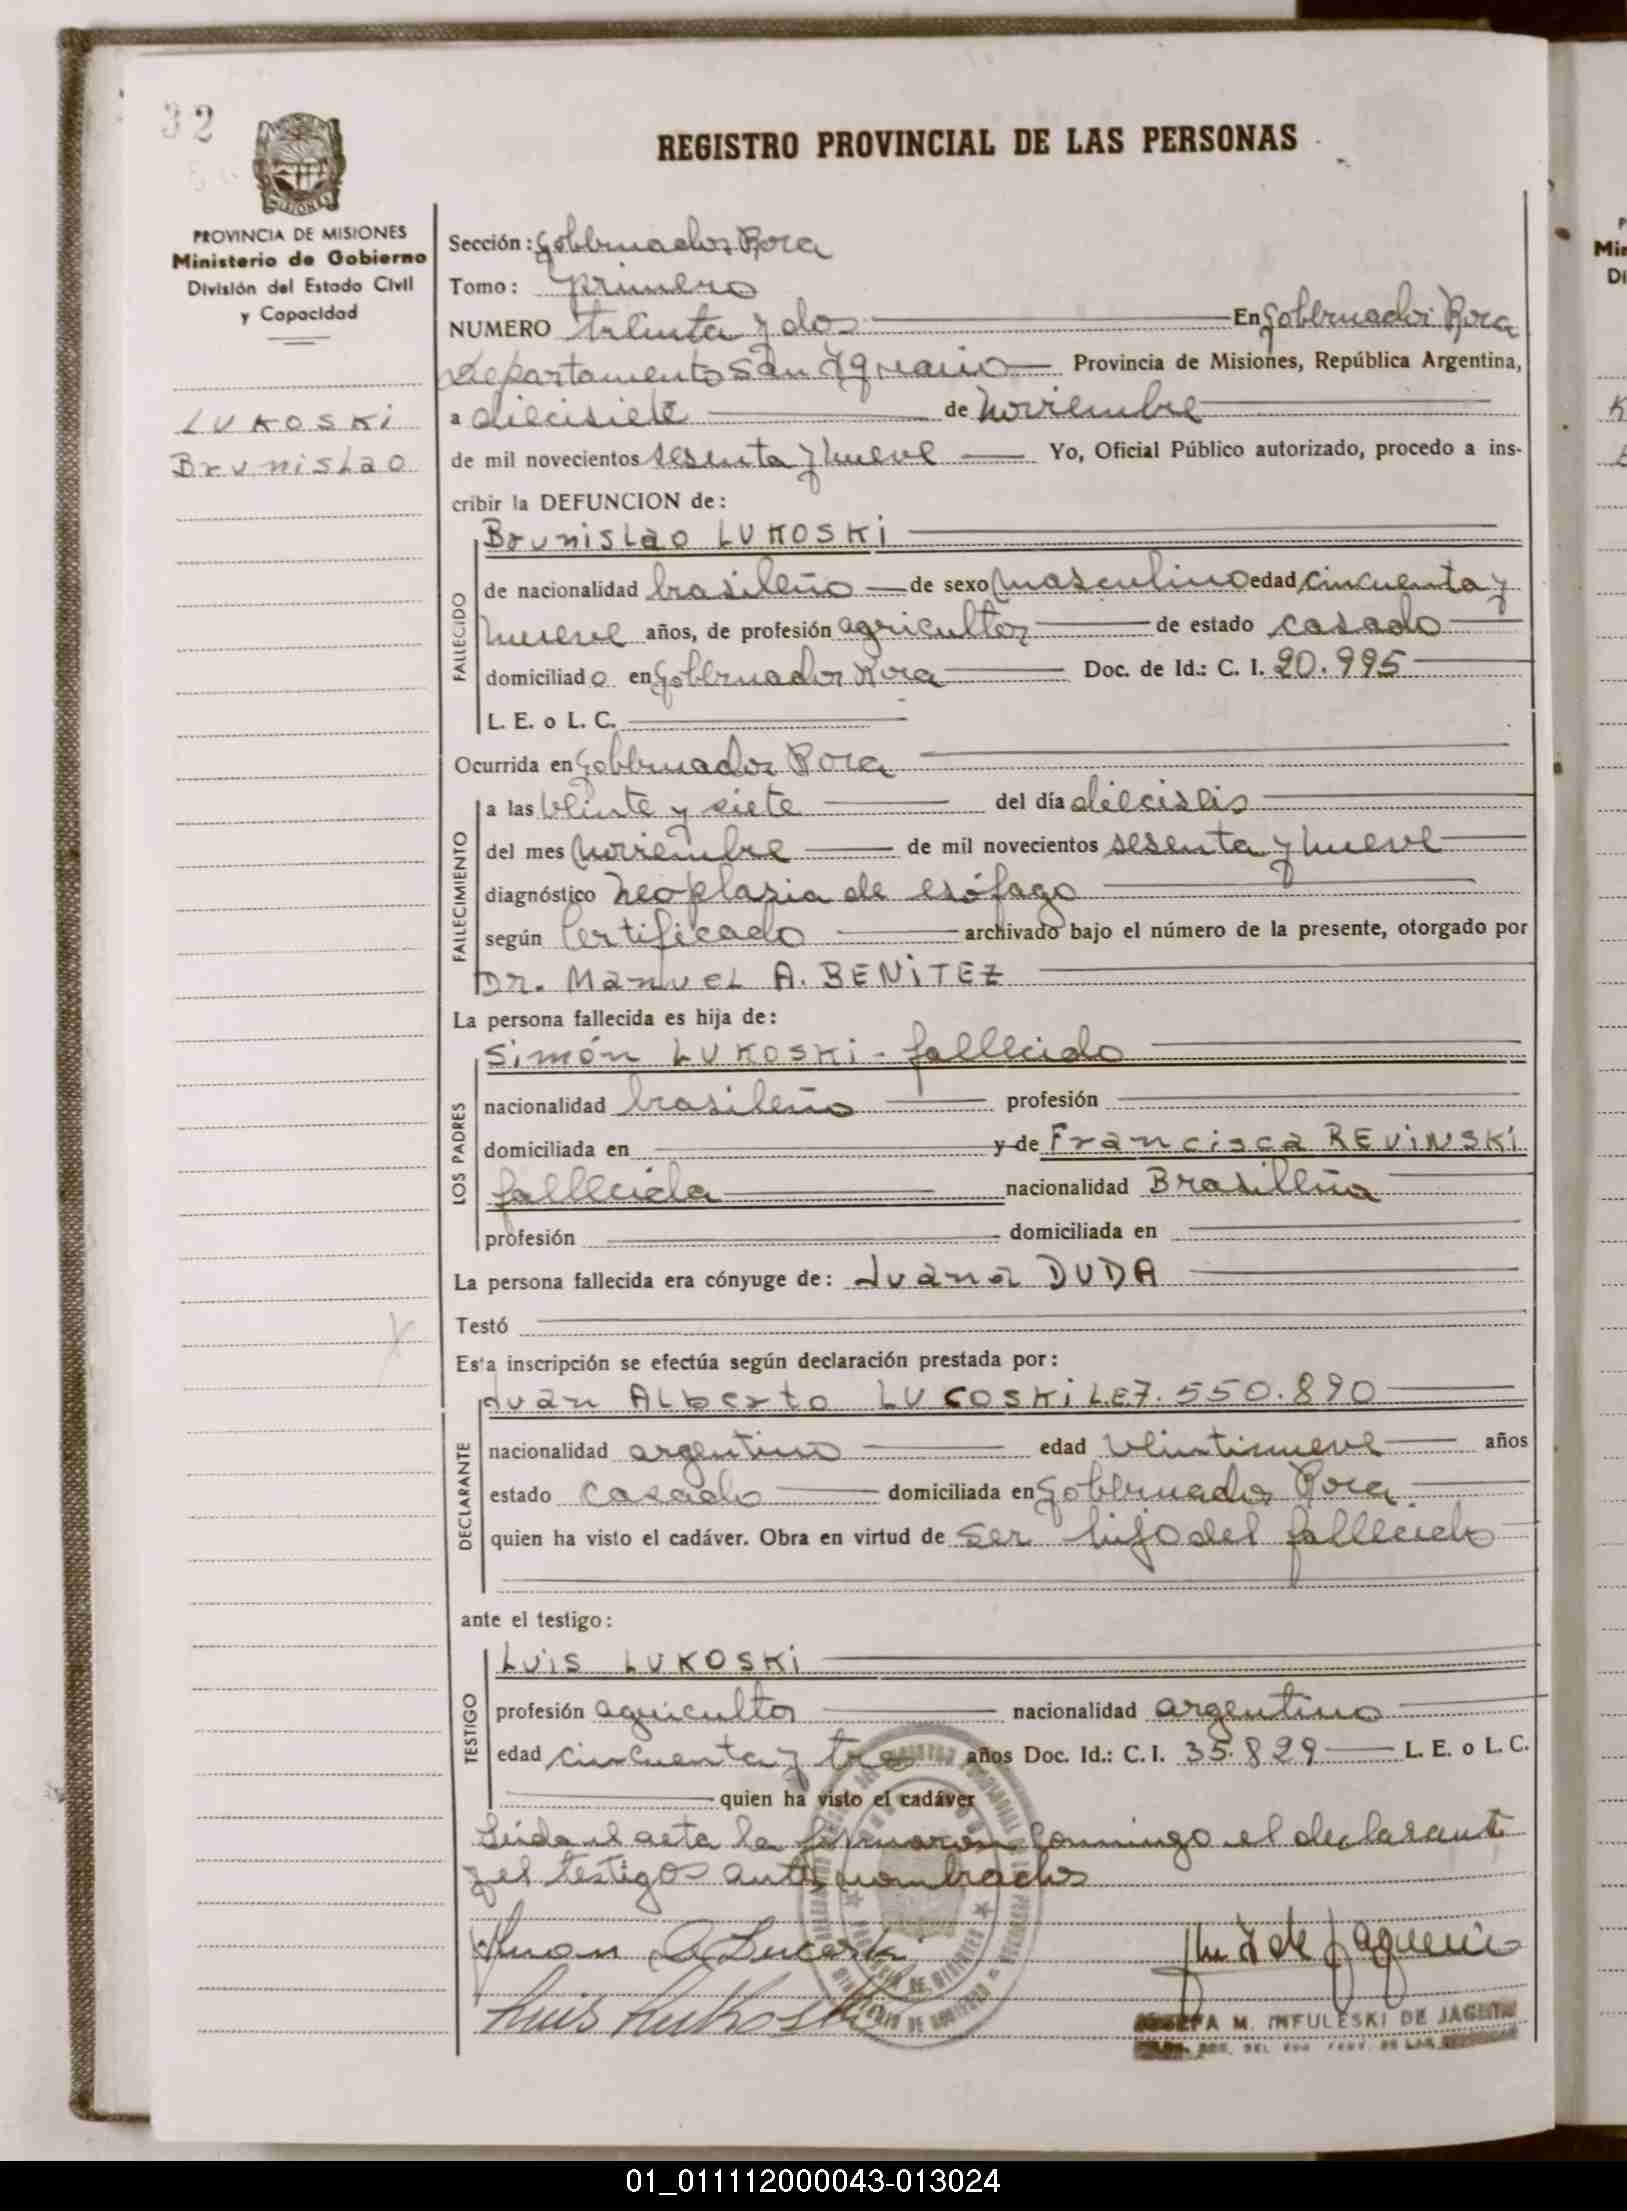 32
REGISTRO PROVINCIAL DE LAS PERSONAS
MISIONES
PROVINCIA DE MISIONES
Ministerio de Gobierno
División del Estado Civil
y Capacidad
LUKOSKI
Brunislao
Sección: Gobernador Roca
Tomo: primero
NUMERO treinta y dos En Gobernador Roca
Departamento San Ignacio Provincia de Misiones, República Argentina,
a diecisiete de noviembre
de mil novecientos sesenta y nueve Yo, Oficial Público autorizado, procedo a ins-
cribir la DEFUNCION de:
Brunislao LUKOSKI
FALLECIDO
de nacionalidad brasileño de sexo masculino edad cincuenta y
nueve años, de profesión agricultor de estado casado
domiciliado en Gobernador Roca Doc. de Id.: C. I. 20.995
L. E. o L. C.
Ocurrida en Gobernador Roca
FALLECIMIENTO
a las veinte y siete del día dieciseis
del mes noviembre de mil novecientos sesenta y nueve
diagnóstico neoplasia de esófago
según certificado archivado bajo el número de la presente, otorgado por
Dr. Manuel A. BENITEZ
La persona fallecida es hija de:
Simón LUKOSKI - fallecido
LOS PADRES
nacionalidad brasileño profesión
domiciliada en y de Francisca REVINSKI
fallecida nacionalidad Brasileña
profesión domiciliada en
La persona fallecida era cónyuge de: Juana DUDA
Testó
Esta inscripción se efectúa según declaración prestada por:
Juan Alberto LUCOSKI L.E.7.550.890
DECLARANTE
nacionalidad argentino edad veintinueve años
estado casado domiciliada en Gobernador Roca
quien ha visto el cadáver. Obra en virtud de ser hijo del fallecido
ante el testigo:
Luis LUKOSKI
TESTIGO
profesión agricultor nacionalidad argentino
edad cincuenta y tres años Doc. Id.: C. I. 35.829 L. E. o L. C.
quien ha visto el cadáver
Leida el acta la firmaron conmigo el declarante
y el testigos antes nombrados
Juan A Lucoski
Luis Lukoski
M. INFULESKI DE JAGEN
01_011112000043-013024